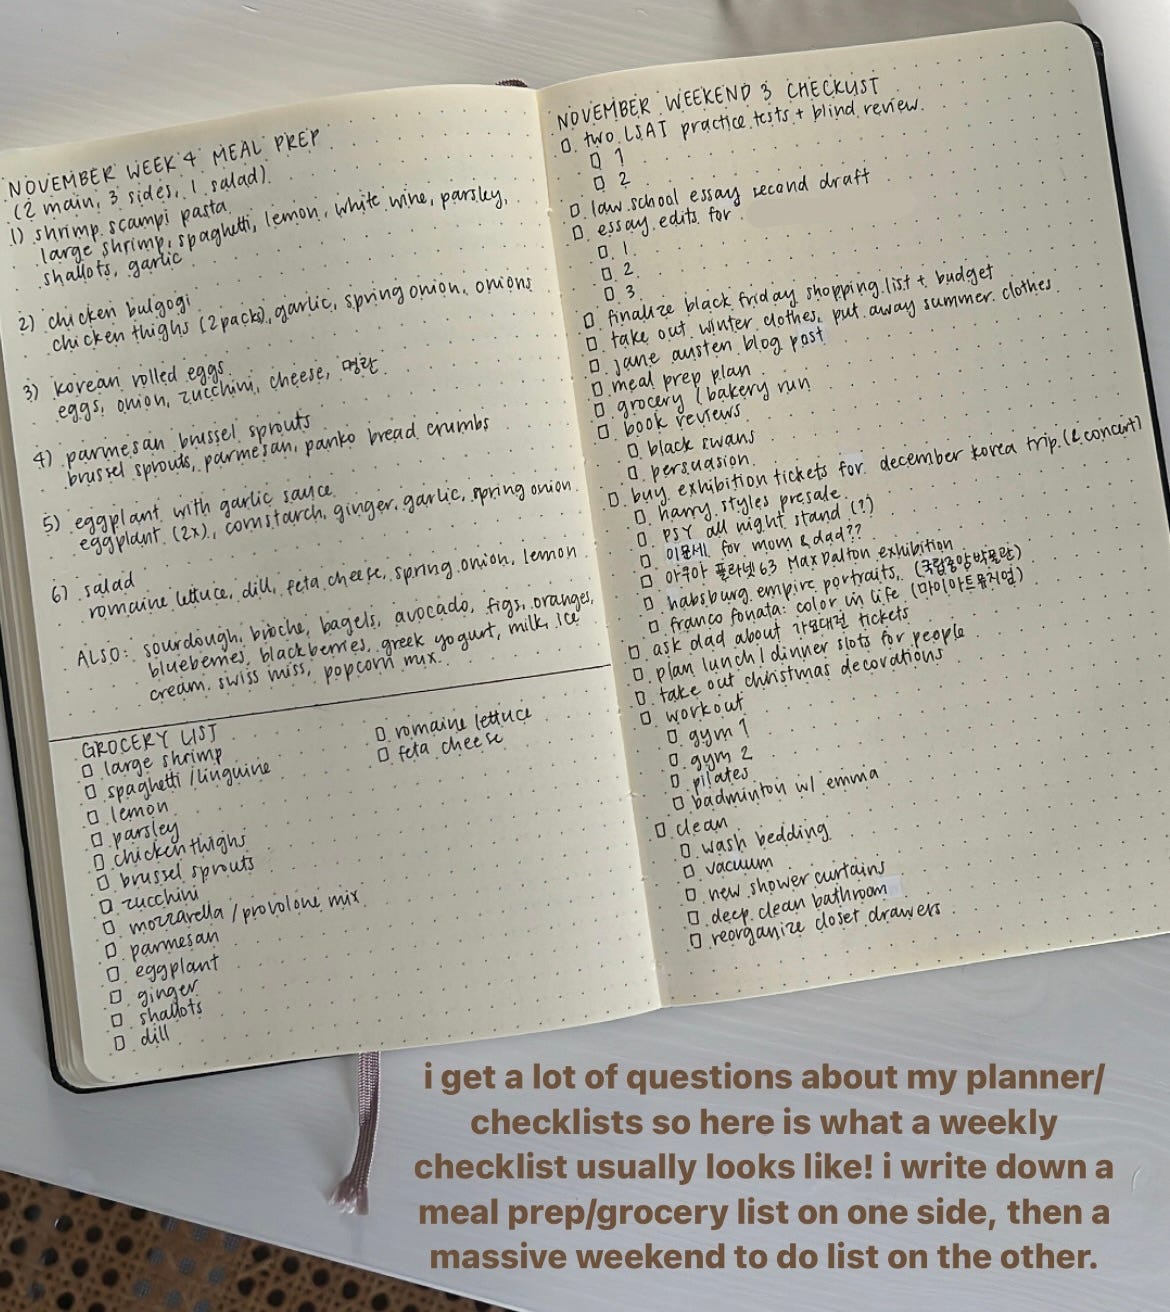 NOVEMBER WEEK 4 MEAL PREP
(2 main, 3 sides, 1 salad)
1) shrimp scampi pasta
large shrimp, spaghetti, lemon, white wine, parsley,
shallots, garlic
2) chicken bulgogi
chicken thighs (2 packs), garlic, spring onion, onions
3) korean rolled eggs
eggs, onion, zucchini, cheese, 명란
4) parmesan brussel sprouts
brussel sprouts, parmesan, panko bread crumbs
5) eggplant with garlic sauce
eggplant (2x), cornstarch, ginger, garlic, spring onion
6) salad
romaine lettuce, dill, feta cheese, spring onion, lemon
ALSO: sourdough, brioche, bagels, avocado, figs, oranges,
blueberries, blackberries, greek yogurt, milk, ice
cream, swiss miss, popcorn mix
GROCERY LIST
□ large shrimp
□ spaghetti / linguine
□ lemon
□ parsley
□ chicken thighs
□ brussel sprouts
□ zucchini
□ mozzarella / provolone mix
□ parmesan
□ eggplant
□ ginger
□ shallots
□ dill
□ romaine lettuce
□ feta cheese
NOVEMBER WEEKEND 3 CHECKLIST
□ two LSAT practice tests + blind review
□ 1
□ 2
□ law school essay second draft
□ essay edits for
□ 1
□ 2
□ 3
□ finalize black friday shopping list + budget
□ take out winter clothes, put away summer clothes
□ jane austen blog post
□ meal prep plan
□ grocery / bakery run
□ book reviews
□ black swans
□ persuasion
□ buy exhibition tickets for december korea trip (& concert)
□ harry styles presale
□ PSY all night stand (?)
□ 이문세 for mom & dad??
□ 아쿠아 플라넷 63 Max Dalton exhibition
□ habsburg empire portraits, (국립중앙박물관)
□ franco fonata: color in life (마이아트뮤지엄)
□ ask dad about 가요대전 tickets
□ plan lunch / dinner slots for people
□ take out christmas decorations
□ workout
□ gym 1
□ gym 2
□ pilates
□ badminton w/ emma
□ clean
□ wash bedding
□ vacuum
□ new shower curtains
□ deep clean bathroom
□ reorganize closet drawers
i get a lot of questions about my planner/
checklists so here is what a weekly
checklist usually looks like! i write down a
meal prep/grocery list on one side, then a
massive weekend to do list on the other.